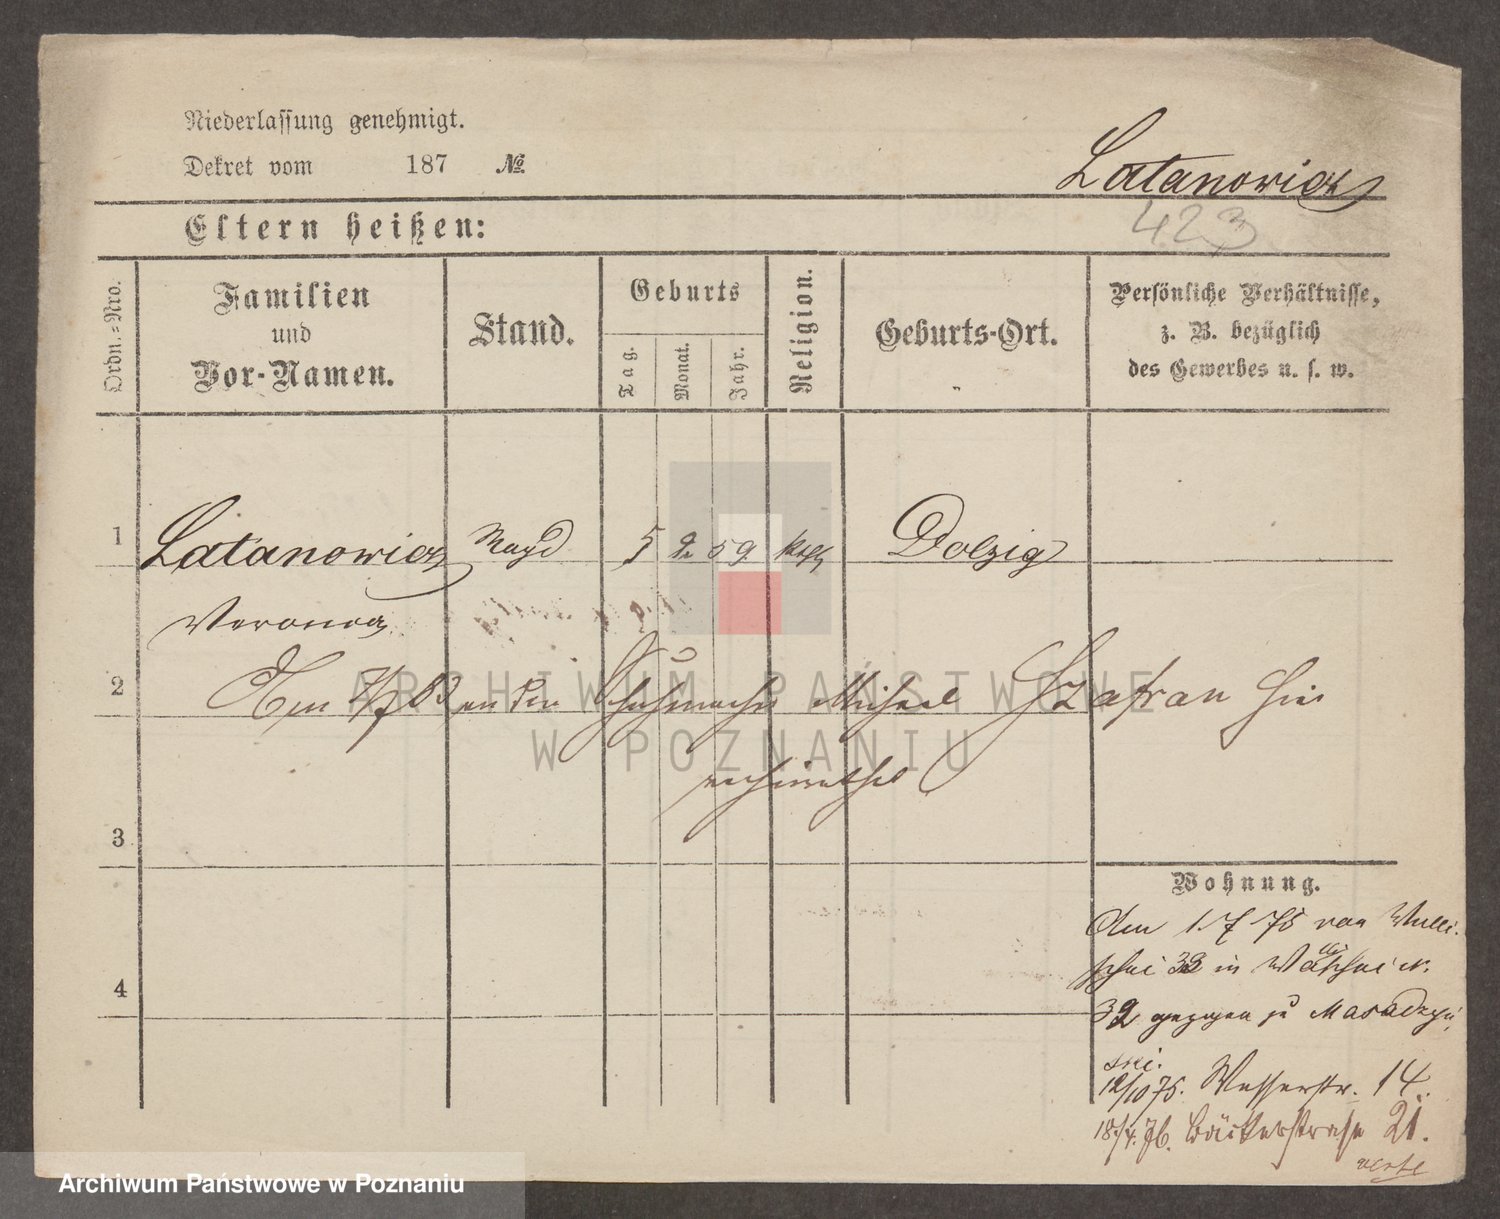 Niederlassung genehmigt.
Dekret vom 187 №
Latanowicz
423
Eltern heißen:
Ordn.-Nro.
Familien
und
Vor-Namen.
Stand.
Geburts
Tag.
Monat.
Jahr.
Religion.
Geburts-Ort.
Persönliche Verhältnisse,
z. B. bezüglich
des Gewerbes u. s. w.
1 Latanowicz Magd 5 2 59 kath Dolzig
Veronica
2 Am an den Schuhmacher Michael Szafran hier
verheirathet
3
4
Wohnung.
Am 1.7 75 von
32 in
32 gezogen zu
ski.
12/10 75. Wasserstr. 14.
18/4. 76. Bäckerstrasse 21.
verte
ARCHIWUM PAŃSTWOWE
W POZNANIU
Archiwum Państwowe w Poznaniu